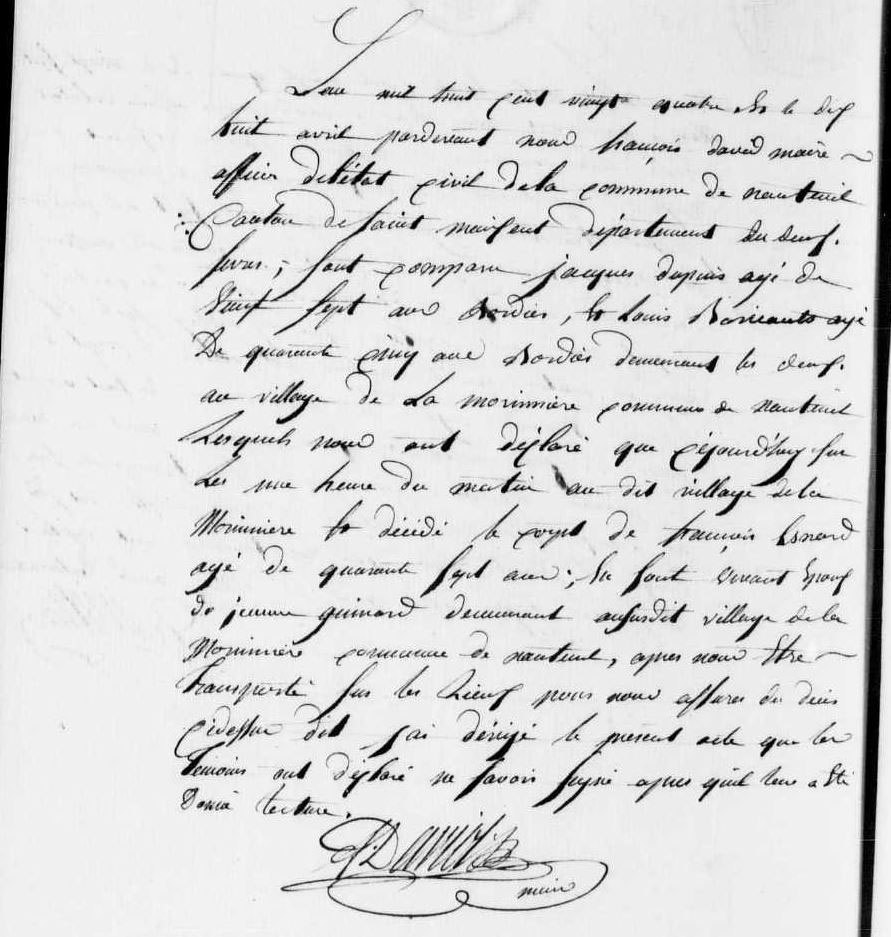 L'an mil huit cent vingt quatre & le dix
huit avril pardevant nous françois david maire
officier de létat civil de la commune de nanteuil
Canton de saint maixent département des deux.
sevres ; sont comparu jacques dupuis agé de
sept ans Bordier, & Louis agé
De quarante cinq ans Bordier demeurant les deux.
au village de La morinnière commune de nanteuil
Lesquels nous ont déclaré que cejourd'huy sur
Les une heure du matin au dit village de la
Morinniere & décidé le corps de francois Esnard
agé de quarante sept ans ; En sont vivant Epoux
de jeanne guinard demeurant aususdit village de la
Morinniere commune de nanteuil, apres nous Etre
transporté sur les Lieux pour nous assurer du deces
cidessus dit j'ai dérigé le present acte que les
temoins ont déclaré ne savoir signé apres quil leur a Eté
Donné lecture.
F. David
maire